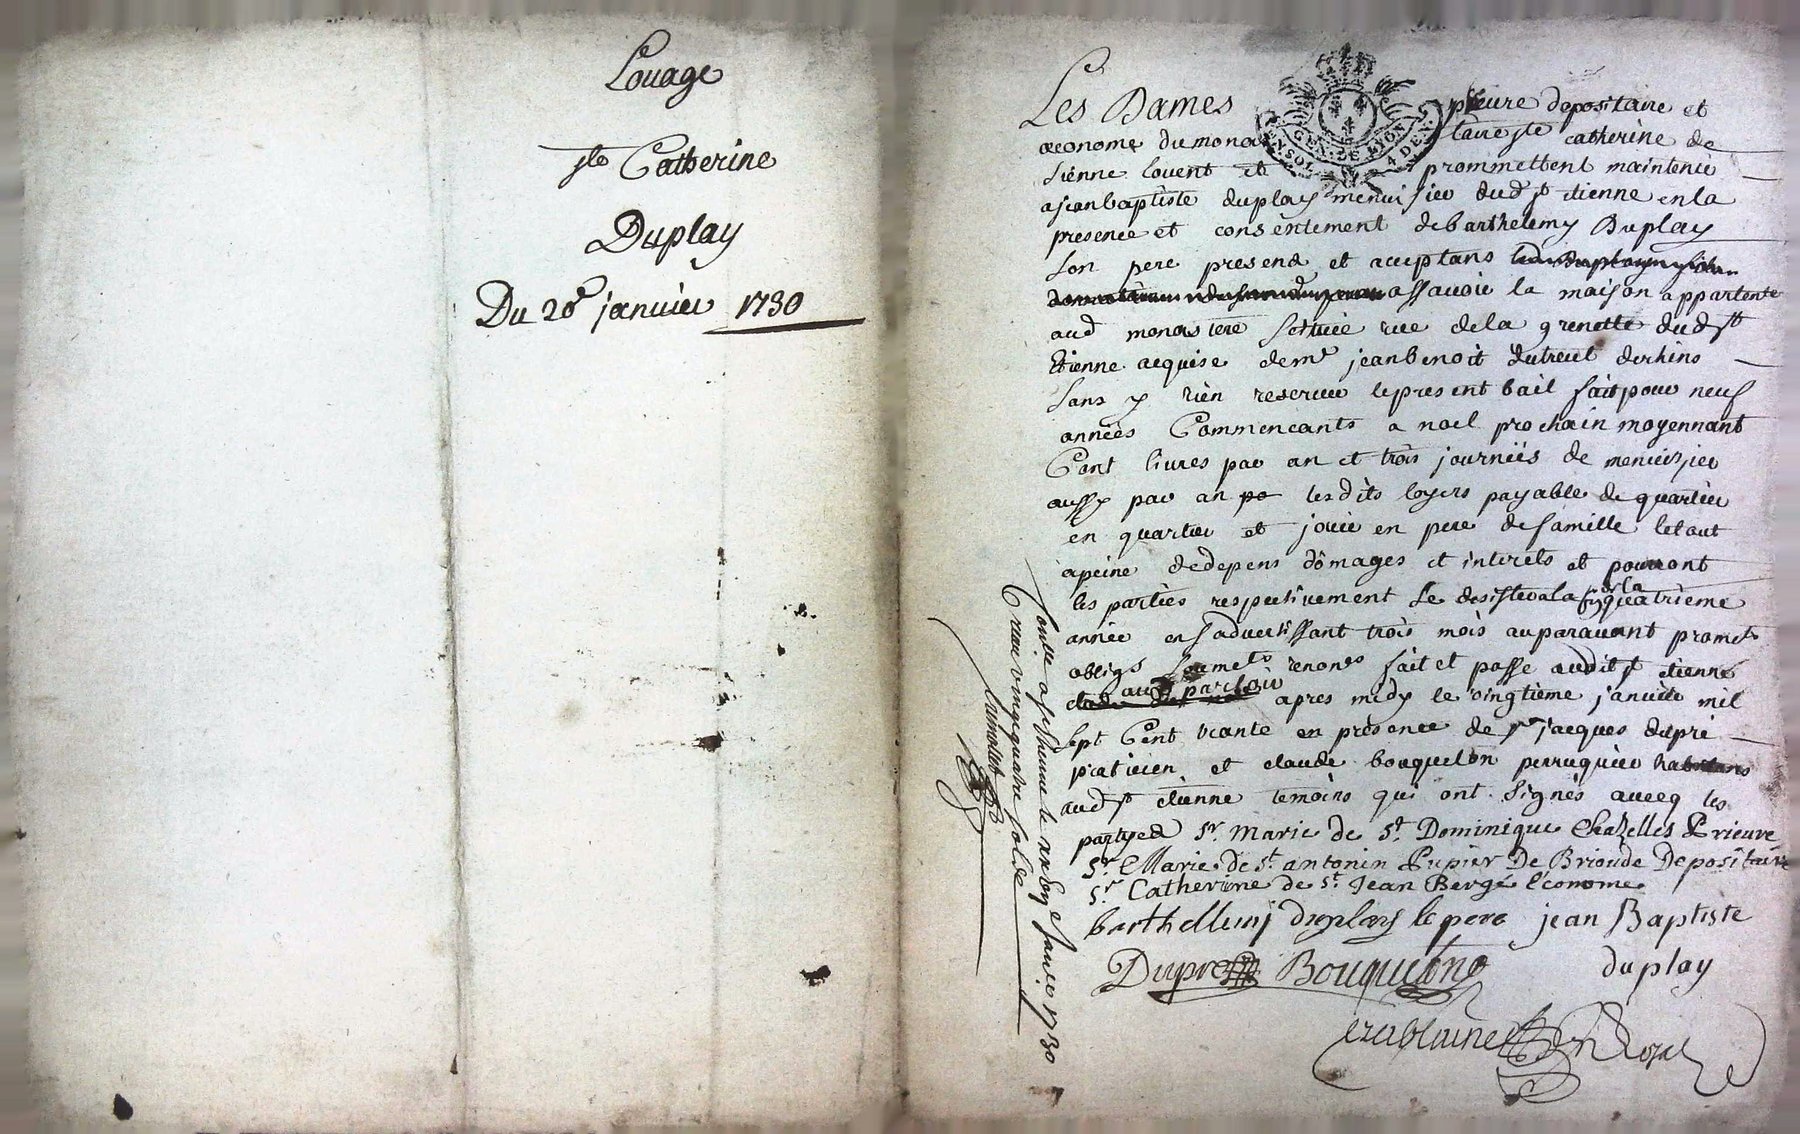 Louage
ste Catherine
Duplay
Du 20e janvier 1730
Les Dames prieure depositaire et
œconome du monastaire ste catherine de
sienne louent et prommettent maintenir
a jean baptiste duplay menuisier dud st etienne en la
presence et consentement de barthelemy Duplay
son pere present et aceptans
assavoir la maison appartente
aud monastere scituée rue de la grenette dud st
Etienne acquise de mr jean benoit dutreul derhins
sans y rien reserver le present bail fait pour neuf
années Commencants a noel prochain moyennant
Cent livres par an et trois journées de menuisier
aussy par an les dits loyers payable de quartier
en quartier et jouir en pere de famille le tout
a peine de depens dômages et interets et pourront
les parties respectivement se desister a la fin de la quatrieme
année en s'advertissant trois mois auparavant promets
obligs soumets renons fait et passé audit st etienne
aud parloir apres midy le vingtieme janvier mil
sept Cent trante en présence de sr jacques dupré
praticien et claude bouqueton perruquier habitans
aud st etienne temoins qui ont signés avecq les
partyes sr Marie de st Dominique Chazelles Prieure
sr Marie de st antonin Pupier De Brioude Depositaire
sr Catherine de st Jean Bergé Econome
barthellemj duplay le pere jean Baptiste
duplay
Dupré Bouqueton
Royal
GEN. DE LYON
4 DEN.
a st etienne le janvie 1730
vingt quatre sols